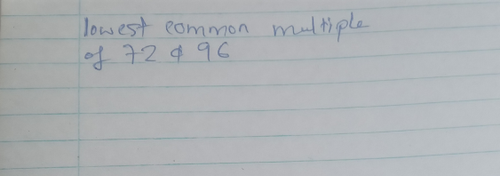 lowest common multiple
of 72 & 96